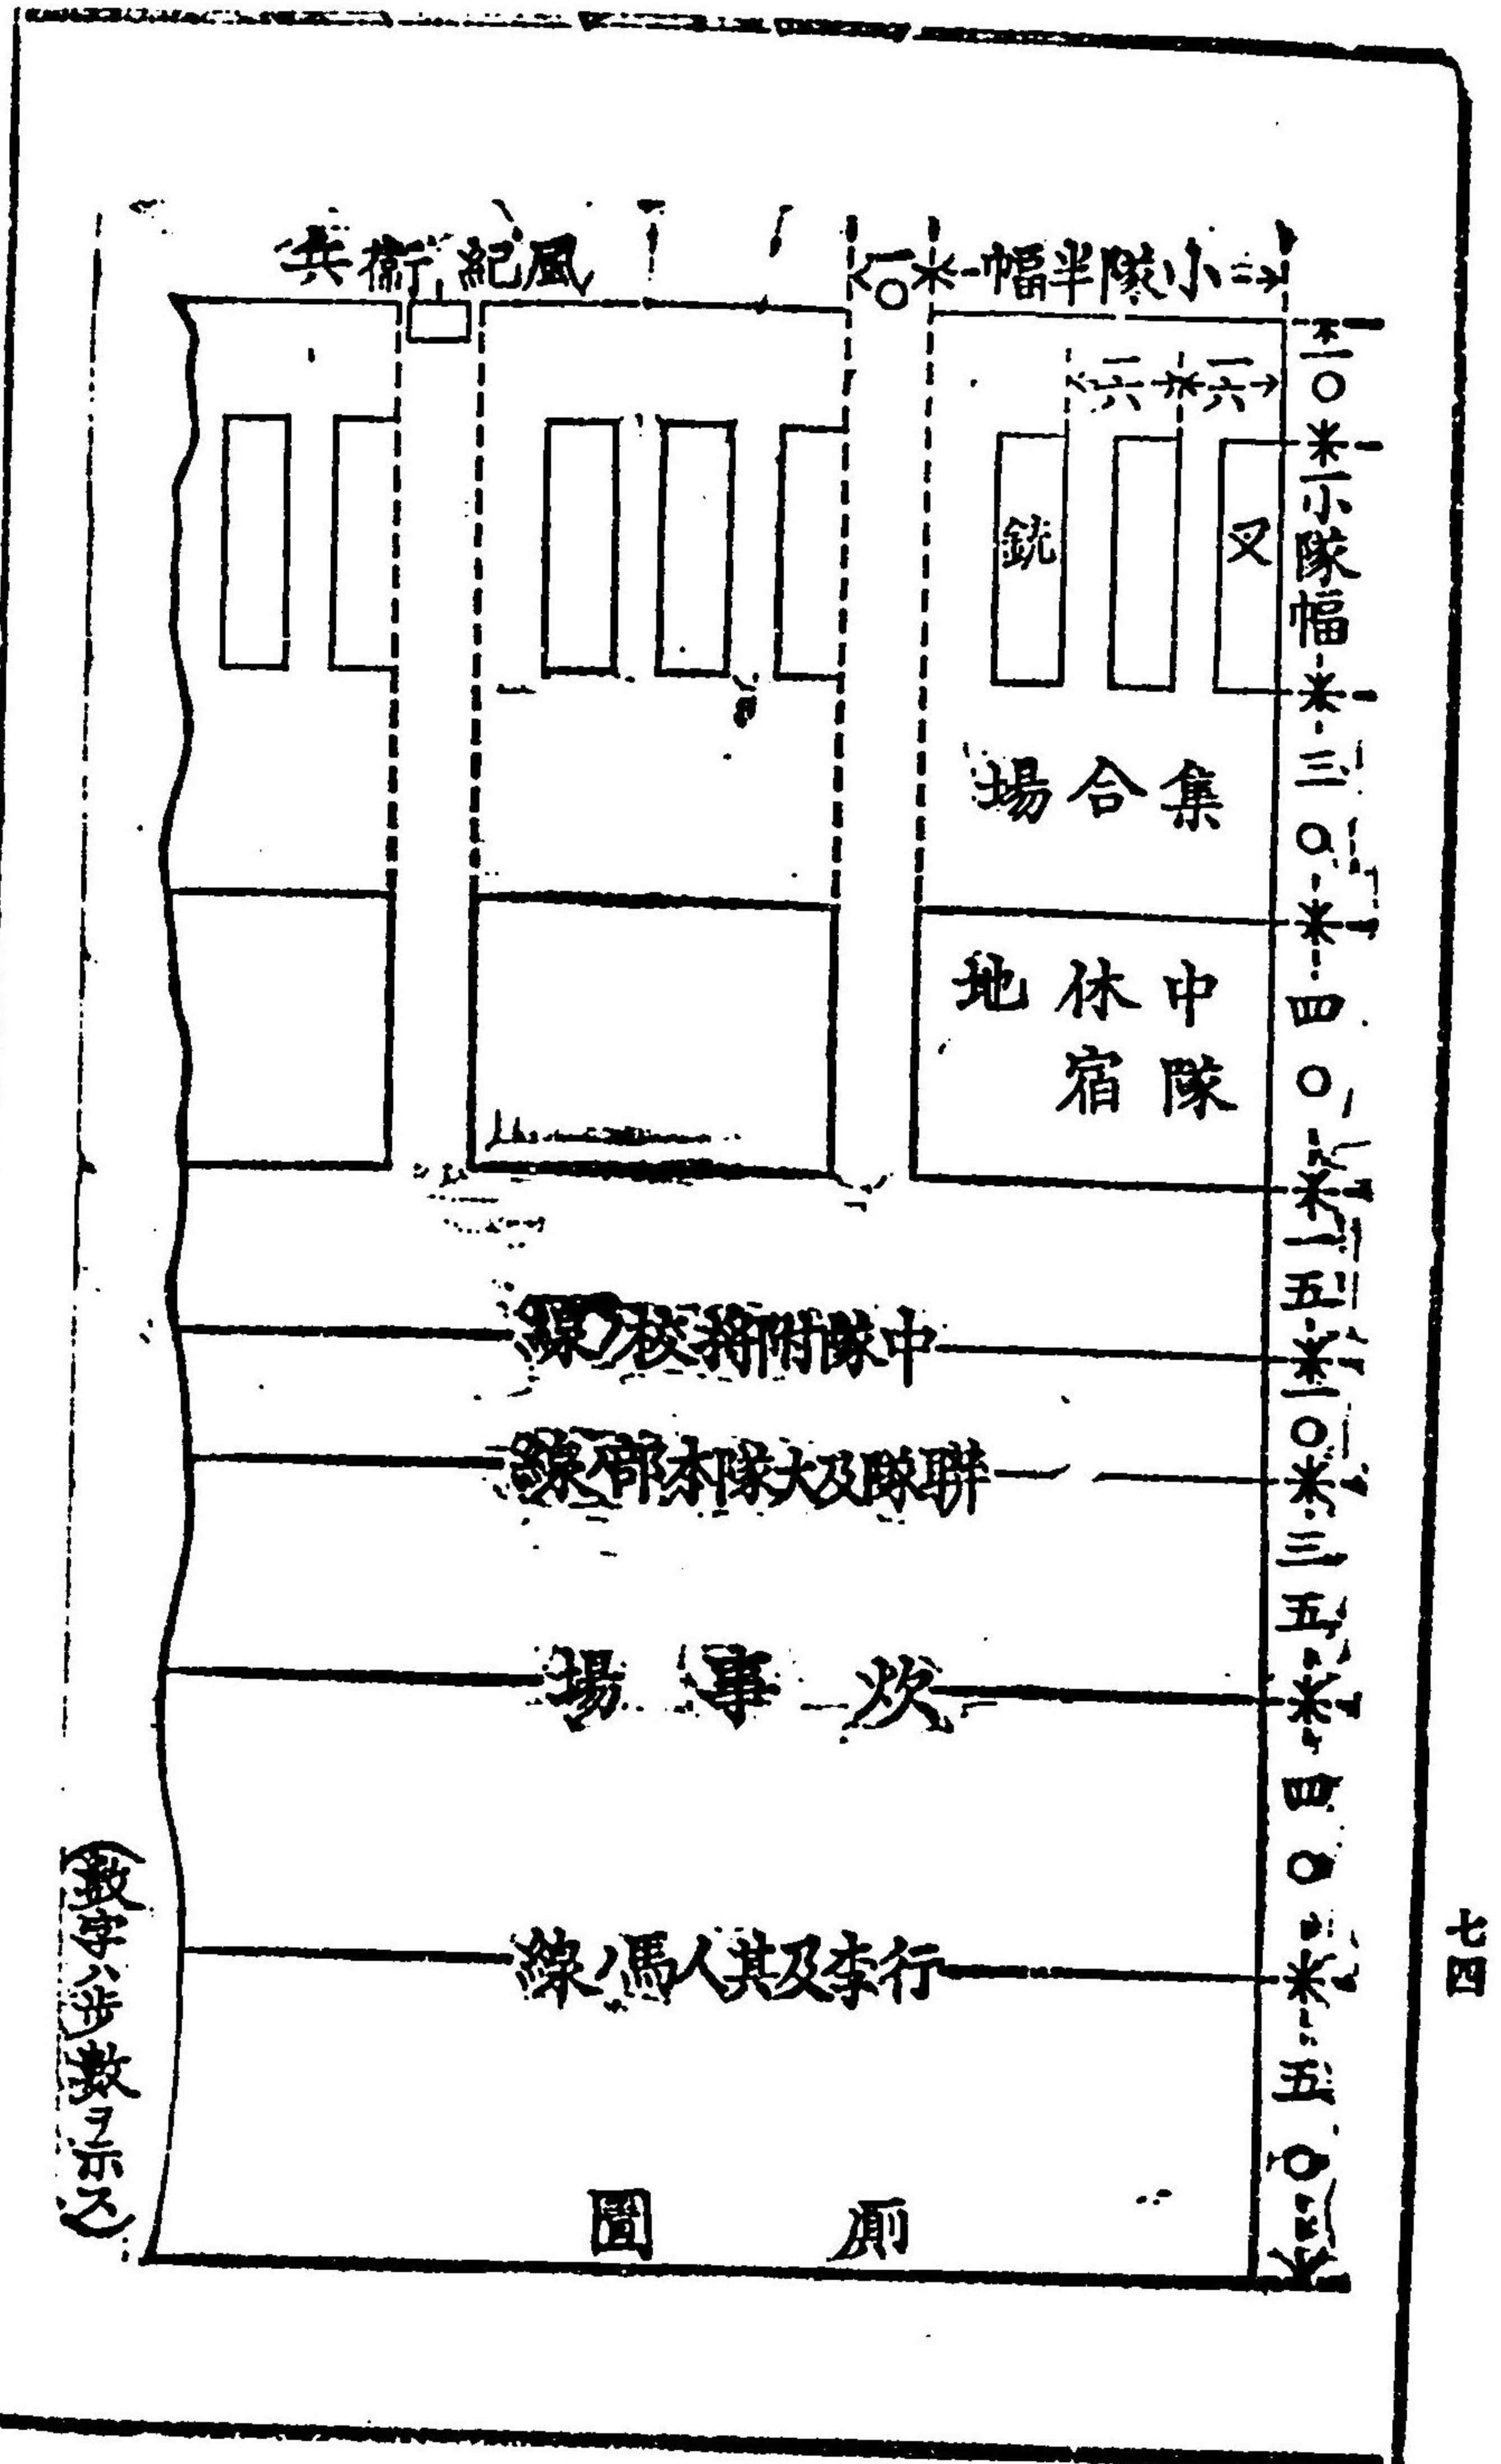 七四
小隊半幅
一〇
風紀衛兵
一〇
小隊幅
三〇
四〇
一五
一〇
三五
四〇
五〇
一六
一六
叉
銃
集合場
中隊
休宿
地
中隊附將校ノ線
聯隊及大隊本部ノ線
炊事場
行李及其人馬ノ線
厠圊
(數字ハ步數ヲ示ス)